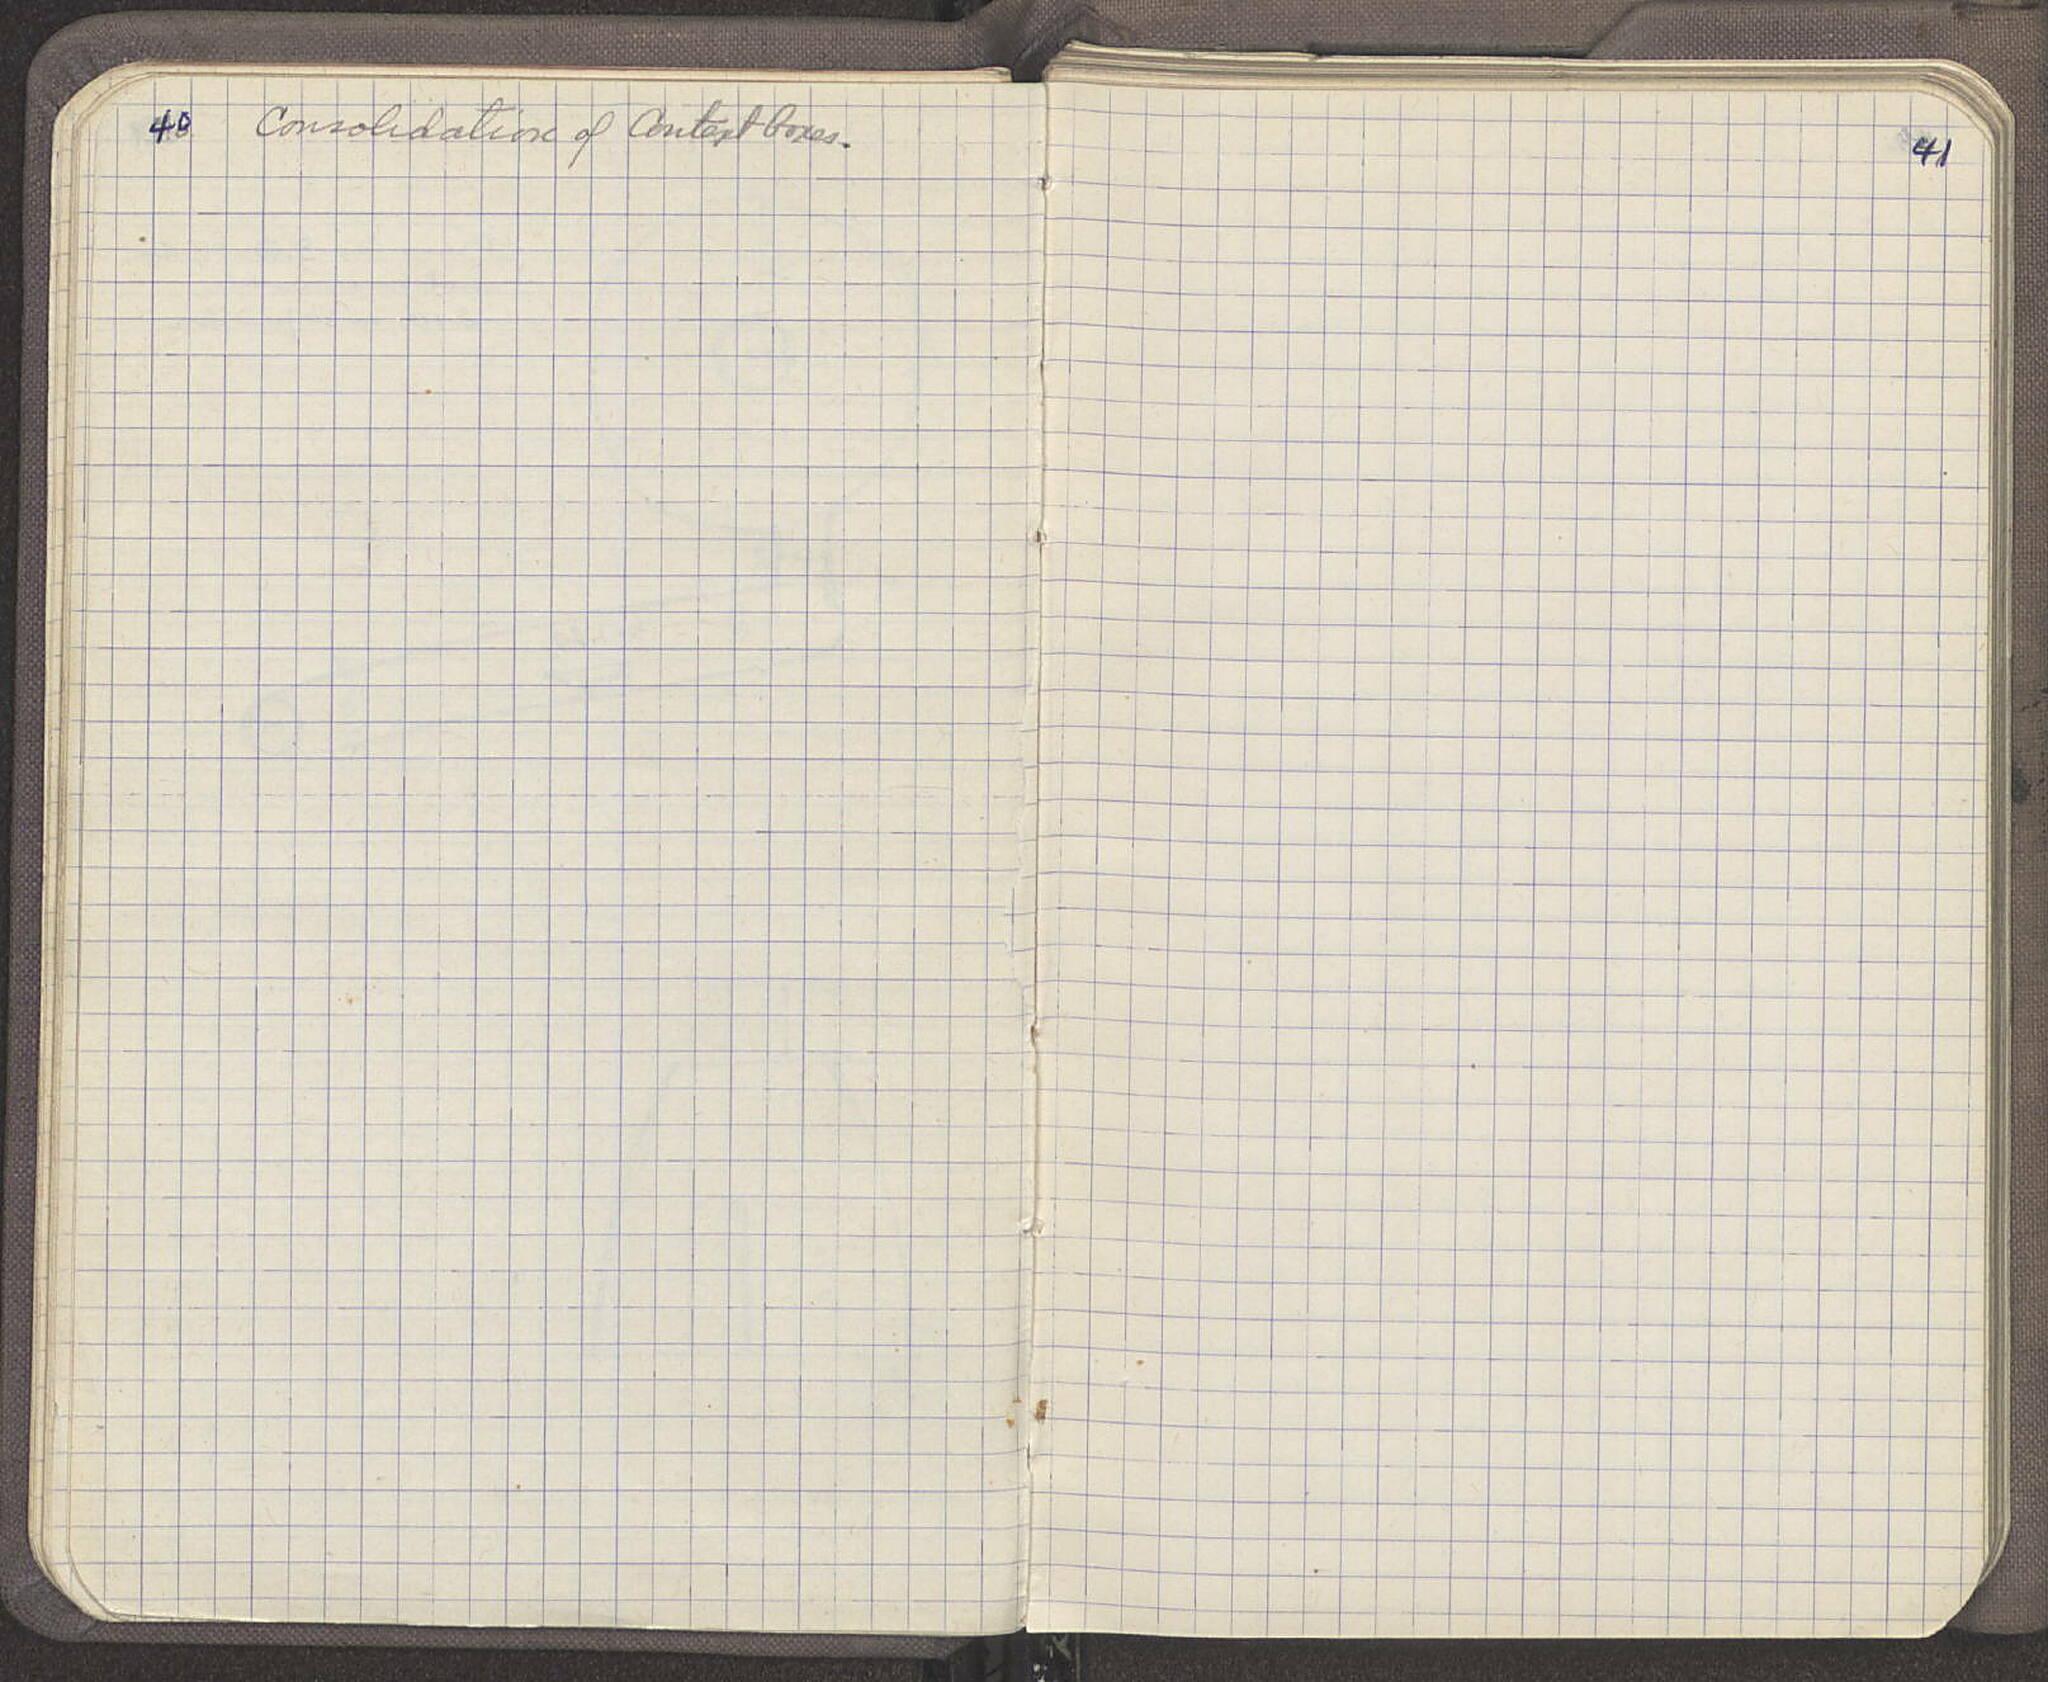 40 Consolidation of Context boxes.
41